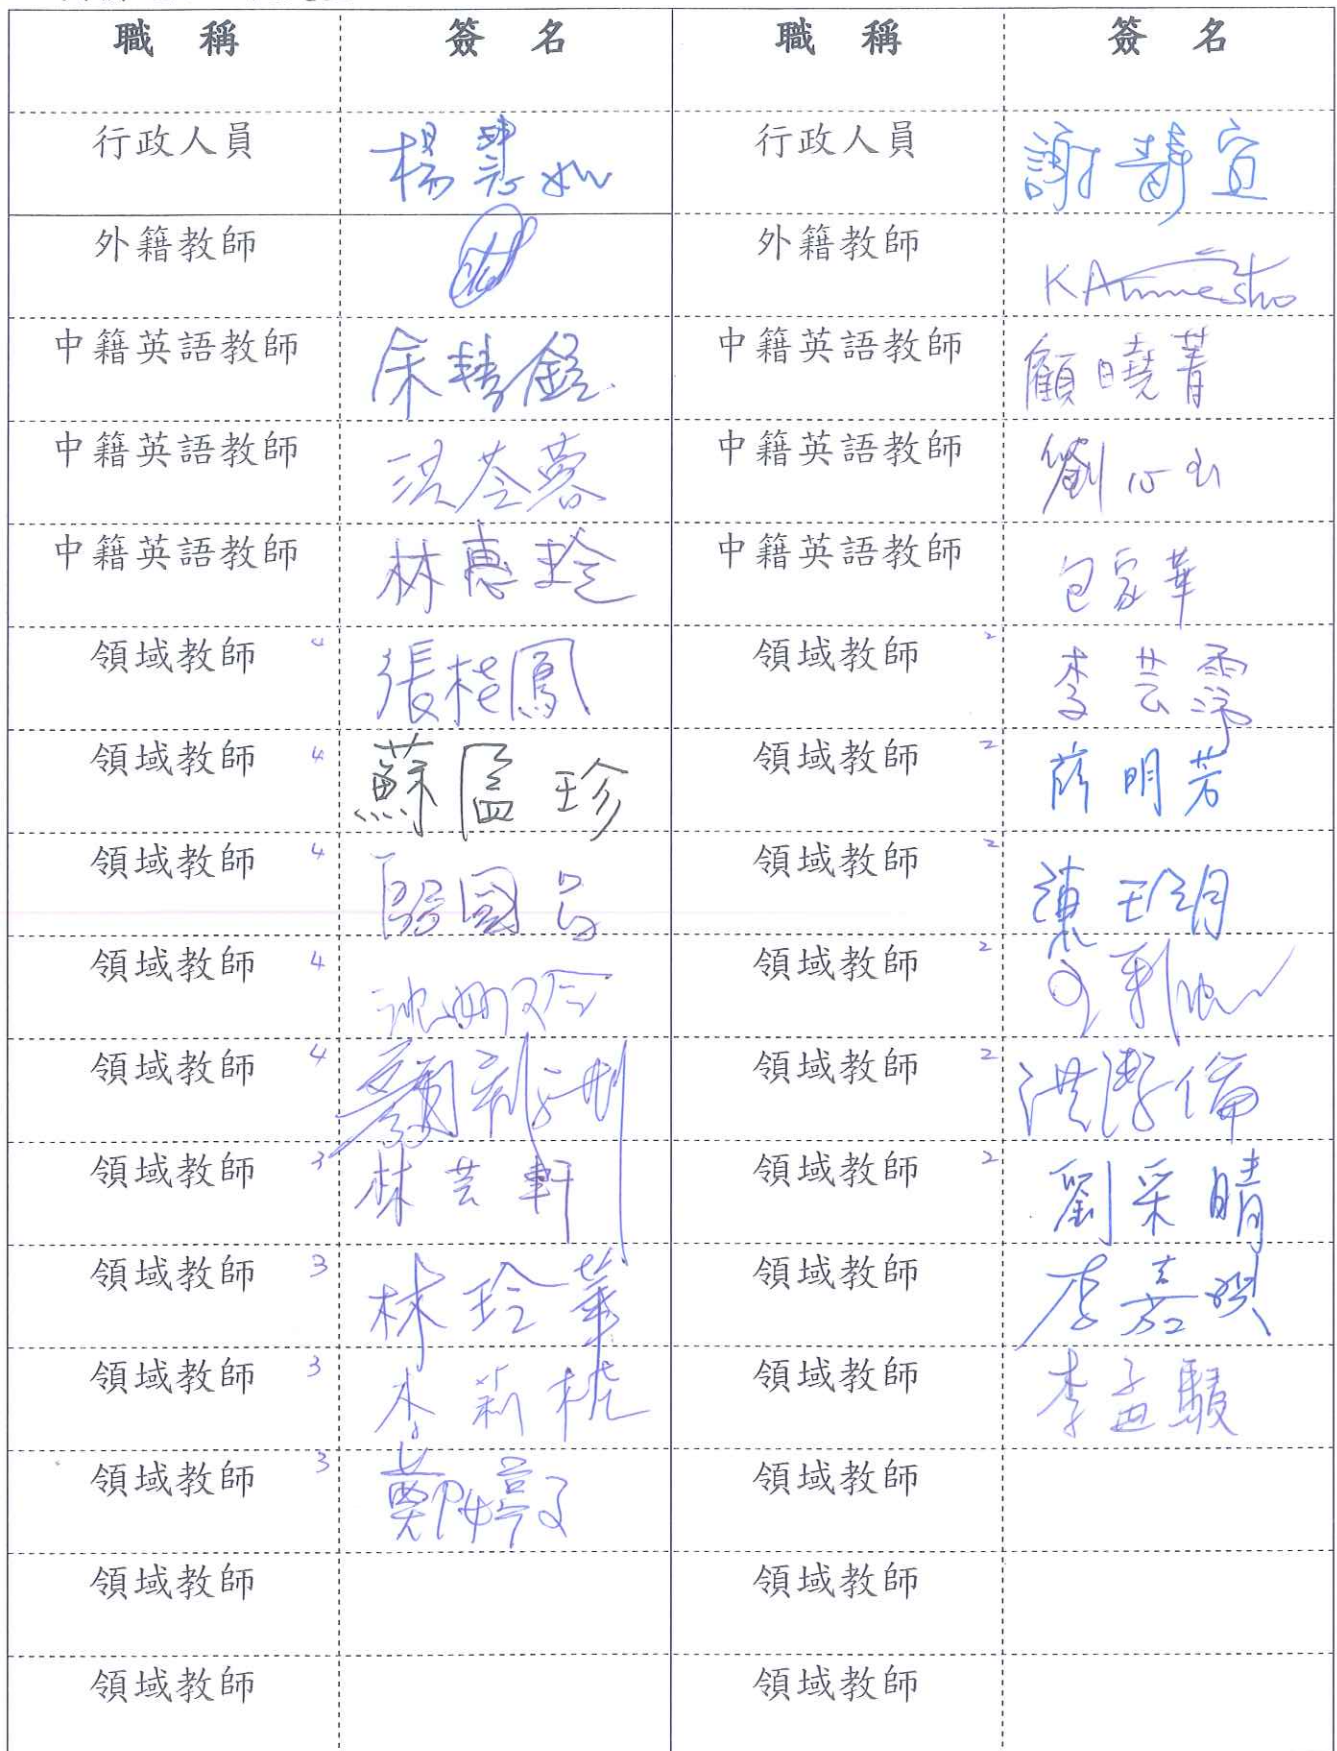 職稱 簽名 職稱 簽名
行政人員 楊慧如 行政人員 謝靜宜
外籍教師 外籍教師
中籍英語教師 余 中籍英語教師 顧曉菁
中籍英語教師 洪苓蓉 中籍英語教師 劉心
中籍英語教師 林惠玲 中籍英語教師 包家華
領域教師 4 張桂鳳 領域教師 2 李芸霈
領域教師 4 蘇 珍 領域教師 2 薛明芳
領域教師 4 國 領域教師 2 陳玥
領域教師 4 沈姍 領域教師 2
領域教師 4 顏 領域教師 2 洪 倫
領域教師 3 林芸軒 領域教師 2 劉采晴
領域教師 3 林玲華 領域教師 李嘉
領域教師 3 李莉桃 領域教師 李孟駿
領域教師 3 鄭婷文 領域教師
領域教師 領域教師
領域教師 領域教師